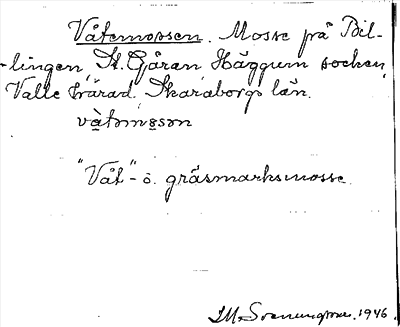 Våtemossen. Mosse på Bil-
-lingen, St. Göran Häggum socken,
Valle härad. Skaraborgs län.
vàtəmo̤sən
"Våt"- o. gräsmarksmosse.
1946.